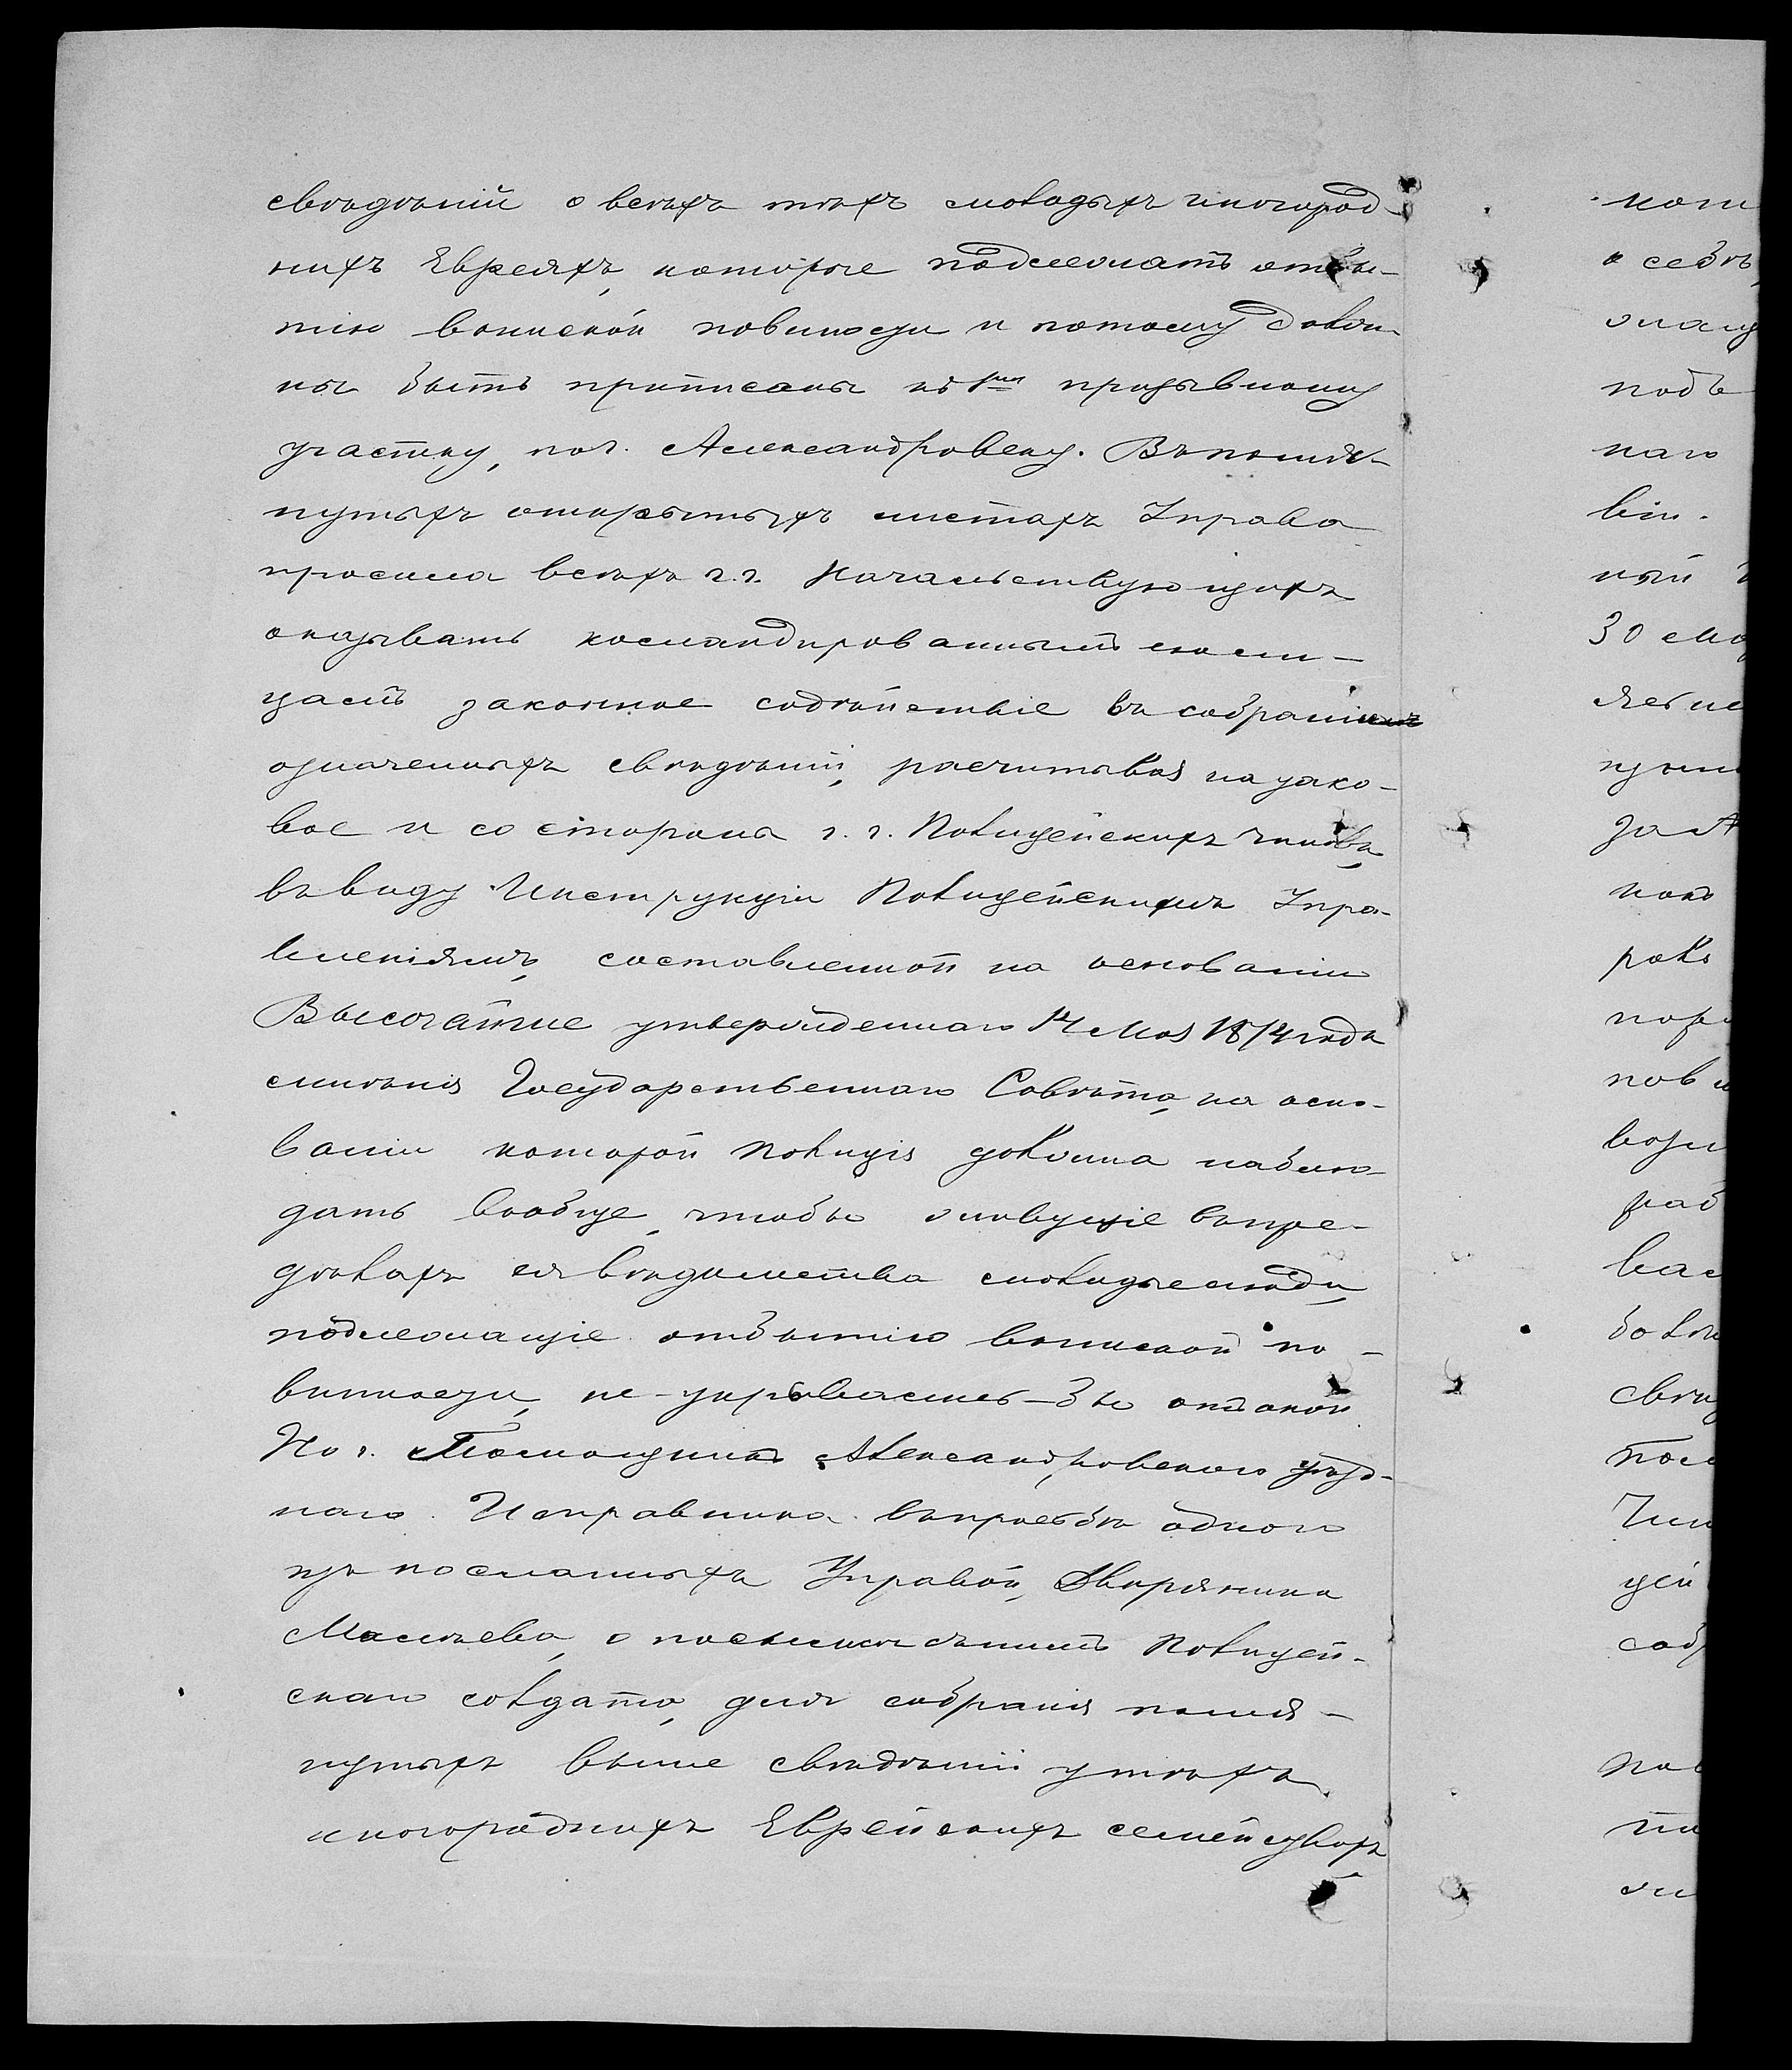 свѣдѣній о всѣхъ тѣхъ молодыхъ иногород-
нихъ Евреяхъ, которые подлежатъ отбы-
тію воинской повинности и потому долж-
ны быть приписаны къ 1му призывному
участку, по г. Александровску. Въ помя-
нутыхъ открытыхъ листахъ Управа
просила всѣхъ г.г. Начальствующихъ
оказывать командированнымъ ею ли-
цамъ законное содѣйствіе въ собраніи
означенныхъ свѣдѣній, расчитывая на тако-
вое и со стороны г. г. Полицейскихъ чиновъ,
въ виду Инструкціи Полицейскимъ Упра-
вленіямъ, составленной на основаніи
Высочайше утвержденнаго 14 Мая 1874 года
мнѣнія Государственнаго Совѣта, на осно-
ваніи которой полиція должна наблю-
дать вообще, чтобы живущіе въ пре-
дѣлахъ ея вѣдомства молодые люди,
подлежащіе отбытію воинской по-
винности, не укрывались-бы отъ оной.
Но г. Помощникъ Александровскаго уѣзд-
наго Исправника въ просьбѣ одного
изъ посланныхъ Управой, Дворянина
о посылкѣ съ нимъ Полицей-
скаго солдата, для собранія помя-
нутыхъ выше свѣдѣній у тѣхъ
иногороднихъ Еврейскихъ семействъ
кот
о себѣ,
жащ
подъ
наго
він.
ный
30 Мар
за А
поко
пов
воз
раб
вас
свѣд
пос
Чин
цей
соб
пов